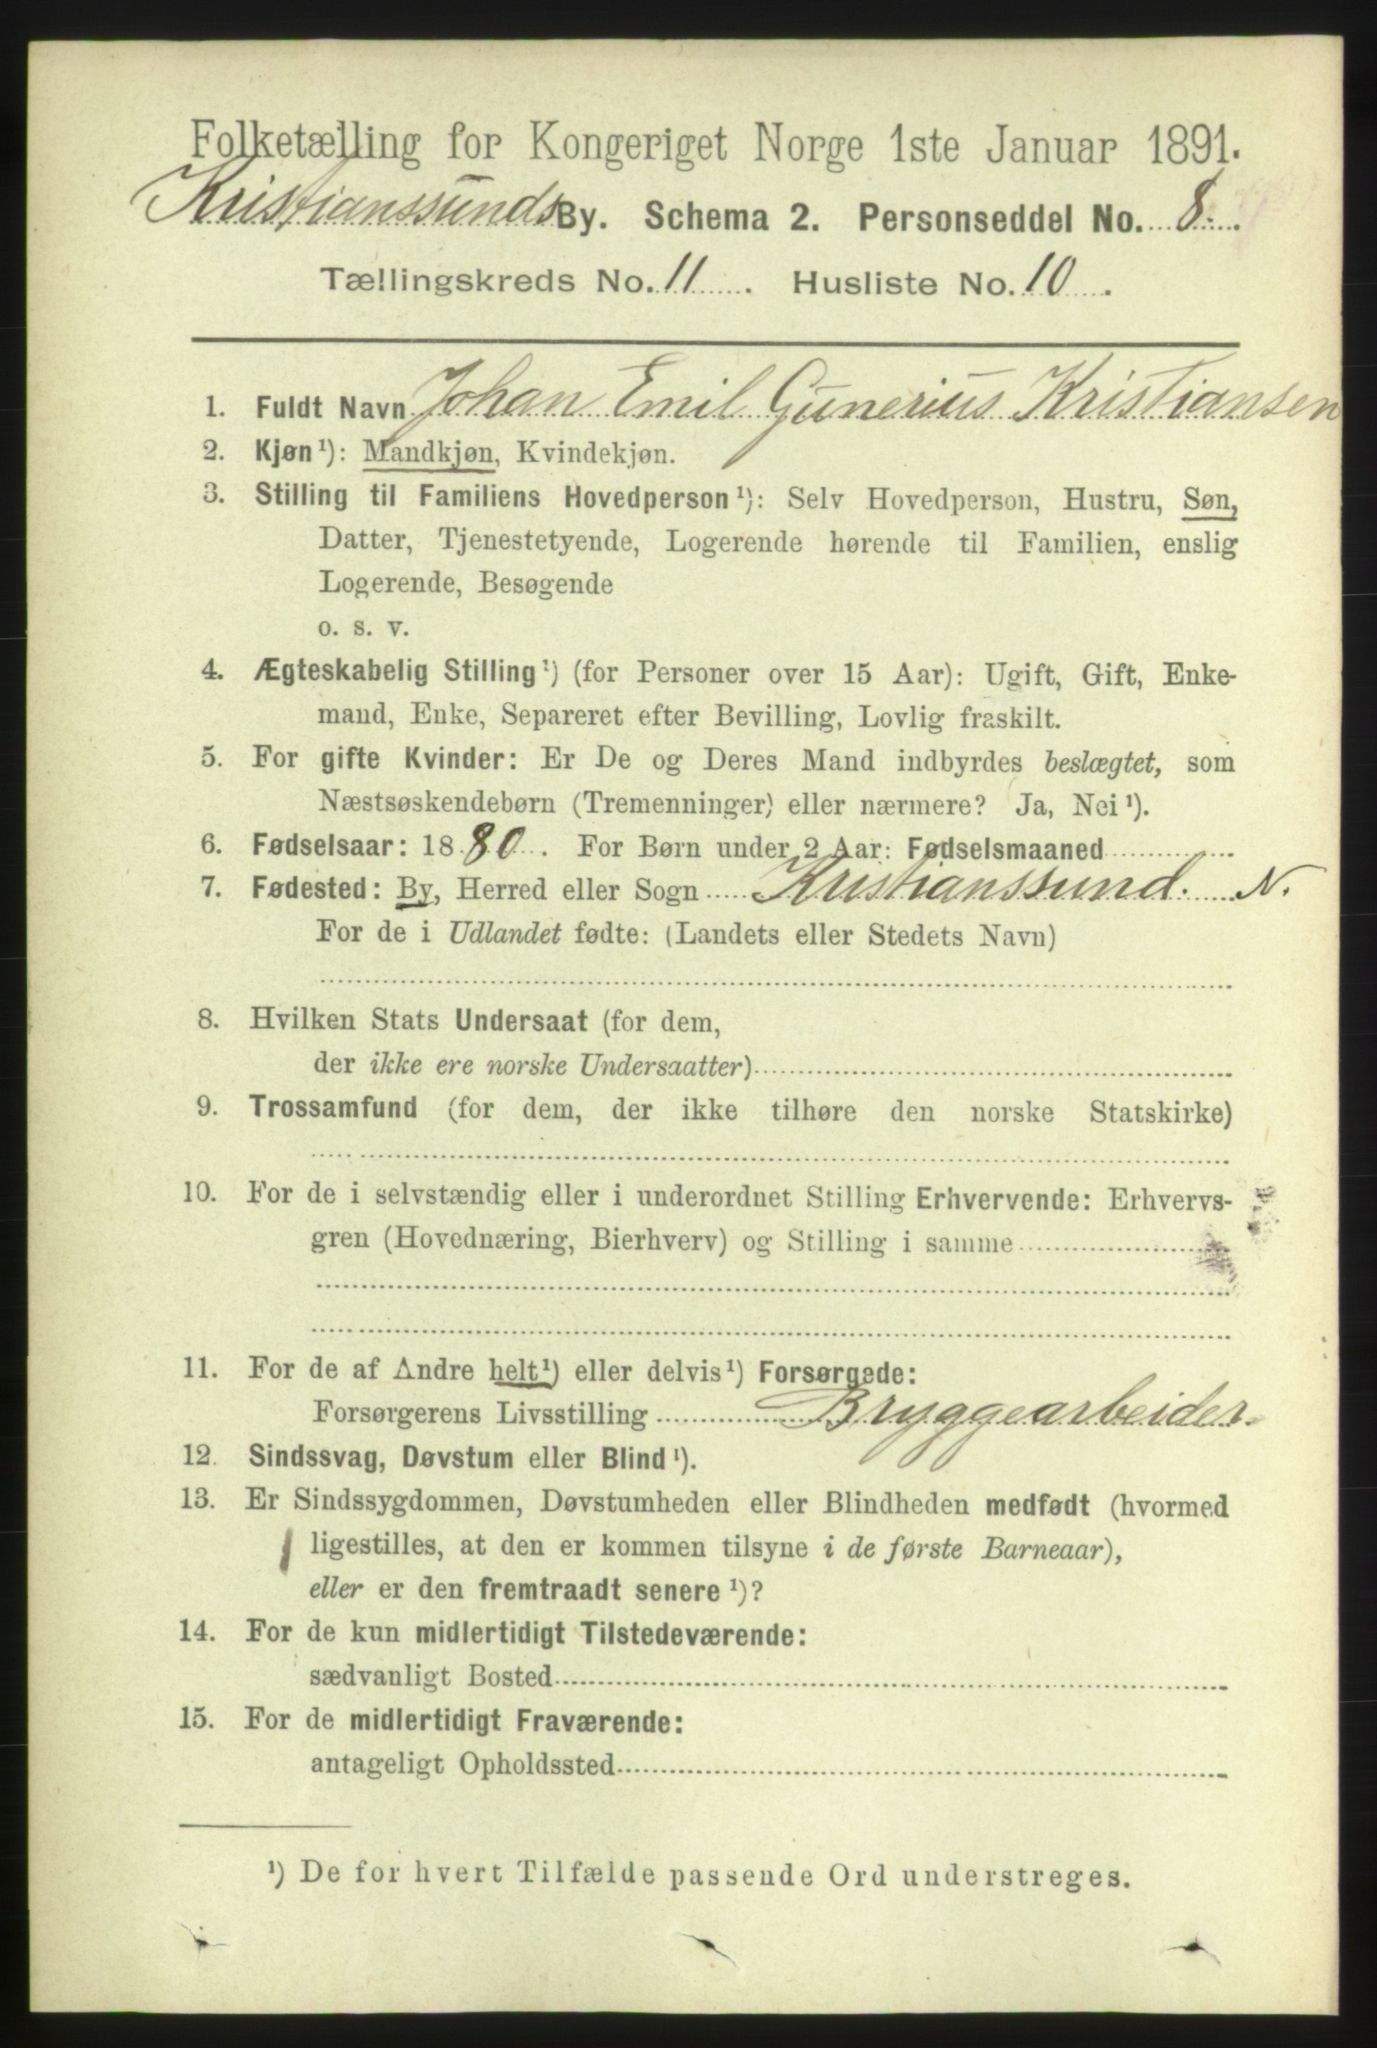 Folketælling for Kongeriget Norge 1ste Januar 1891.
Kristianssunds By. Schema 2. Personseddel No. 8.
Tællingskreds No. 11. Husliste No. 10.
1. Fuldt Navn Johan Emil Gunerius Kristiansen
2. Kjøn¹): Mandkjøn, Kvindekjøn.
3. Stilling til Familiens Hovedperson¹): Selv Hovedperson, Hustru, Søn,
Datter, Tjenestetyende, Logerende hørende til Familien, enslig
Logerende, Besøgende
o. s. v.
4. Ægteskabelig Stilling¹) (for Personer over 15 Aar): Ugift, Gift, Enke-
mand, Enke, Separeret efter Bevilling, Lovlig fraskilt.
5. For gifte Kvinder: Er De og Deres Mand indbyrdes beslægtet, som
Næstsøskendebørn (Tremenninger) eller nærmere? Ja, Nei¹).
6. Fødselsaar: 1880. For Børn under 2 Aar: Fødselsmaaned
7. Fødested: By, Herred eller Sogn Kristianssund. N.
For de i Udlandet fødte: (Landets eller Stedets Navn)
8. Hvilken Stats Undersaat (for dem,
der ikke ere norske Undersaatter)
9. Trossamfund (for dem, der ikke tilhøre den norske Statskirke)
10. For de i selvstændig eller i underordnet Stilling Erhvervende: Erhvervs-
gren (Hovednæring, Bierhverv) og Stilling i samme
11. For de af Andre helt¹) eller delvis¹) Forsørgede:
Forsørgerens Livsstilling Bryggearbeider.
12. Sindssvag, Døvstum eller Blind¹).
13. Er Sindssygdommen, Døvstumheden eller Blindheden medfødt (hvormed
ligestilles, at den er kommen tilsyne i de første Barneaar),
eller er den fremtraadt senere¹)?
14. For de kun midlertidigt Tilstedeværende:
sædvanligt Bosted
15. For de midlertidigt Fraværende:
antageligt Opholdssted
¹) De for hvert Tilfælde passende Ord understreges.